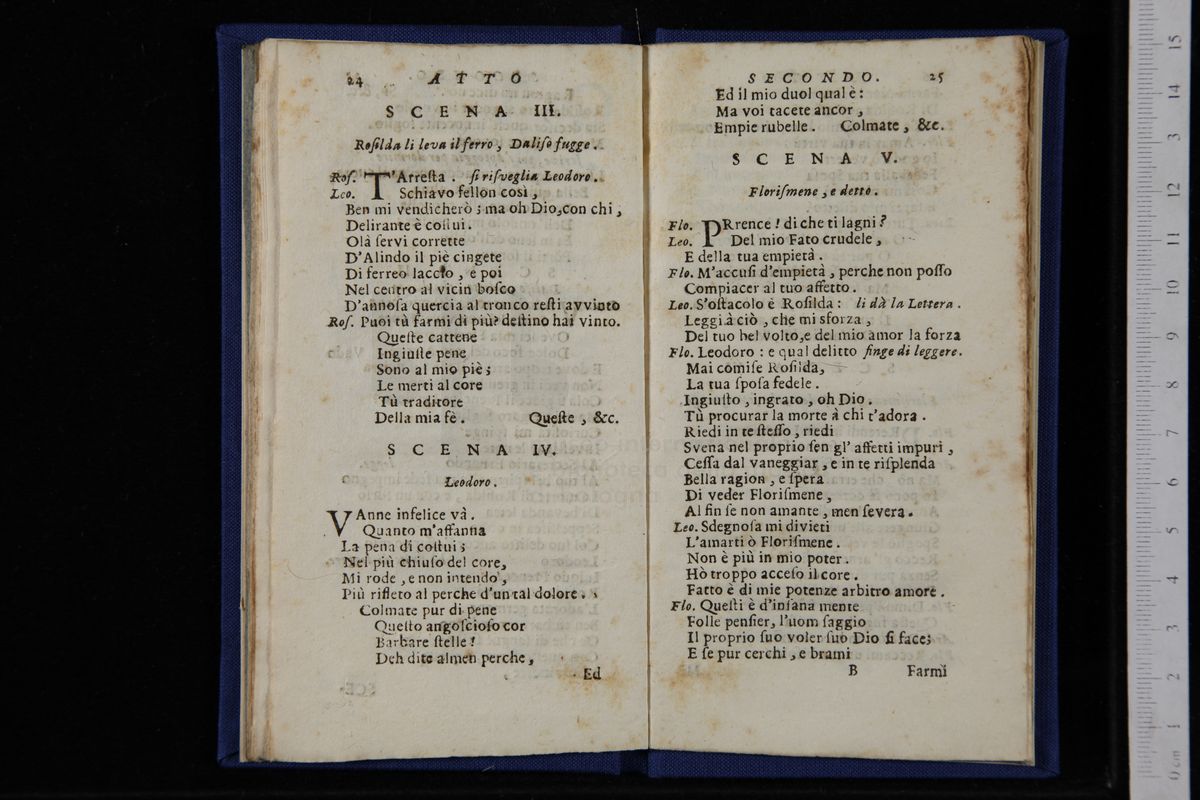 24 ATTO
SCENA III.
Roſilda li leva il ferro, Daliſo fugge.
Roſ. T'Arreſta. ſi riſveglia Leodoro.
Leo. Schiavo fellon così,
Ben mi vendicherò; ma oh Dio, con chi,
Delirante è coſtui.
Olà ſervi correte
D'Alindo il piè cingete
Di ferreo laccio, e poi
Nel centro al vicin boſco
D'annoſa quercia al tronco reſti avvinto
Roſ. Puoi tù farmi di più? deſtino hai vinto.
Queſte cattene
Ingiuſte pene
Sono al mio piè;
Le merti al core
Tù traditore
Della mia fè. Queſte, &c.
SCENA IV.
Leodoro.
VAnne infelice và.
Quanto m'affanna
La pena di coſtui;
Nel più chiuſo del core,
Mi rode, e non intendo,
Più rifleto al perche d'un tal dolore.
Colmate pur di pene
Queſto angoſcioſo cor
Barbare ſtelle!
Deh dite almen perche,
Ed
SECONDO. 25
Ed il mio duol qual è:
Ma voi tacete ancor,
Empie rubelle. Colmate, &c.
SCENA V.
Floriſmene, e detto.
Flo. PRrence! di che ti lagni?
Leo. Del mio Fato crudele,
E della tua empietà.
Flo. M'accuſi d'empietà, perche non poſſo
Compiacer al tuo affetto.
Leo. S'oſtacolo è Roſilda: li dà la Lettera.
Leggi à ciò, che mi sforza,
Del tuo bel volto, e del mio amor la forza
Flo. Leodoro: e qual delitto finge di leggere.
Mai comiſe Roſilda,
La tua ſpoſa fedele.
Ingiuſto, ingrato, oh Dio.
Tù procurar la morte à chi t'adora.
Riedi in te ſteſſo, riedi
Svena nel proprio ſen gl' affetti impuri,
Ceſſa dal vaneggiar, e in te riſplenda
Bella ragion, e ſpera
Di veder Floriſmene,
Al fin ſe non amante, men ſevera.
Leo. Sdegnoſa mi divieti
L'amarti ò Floriſmene.
Non è più in mio poter.
Hò troppo acceſo il core.
Fatto è di mie potenze arbitro amore.
Flo. Queſti è d'inſana mente
Folle penſier, l'uom ſaggio
Il proprio ſuo voler ſuo Dio ſi face;
E ſe pur cerchi, e brami
B Farmi